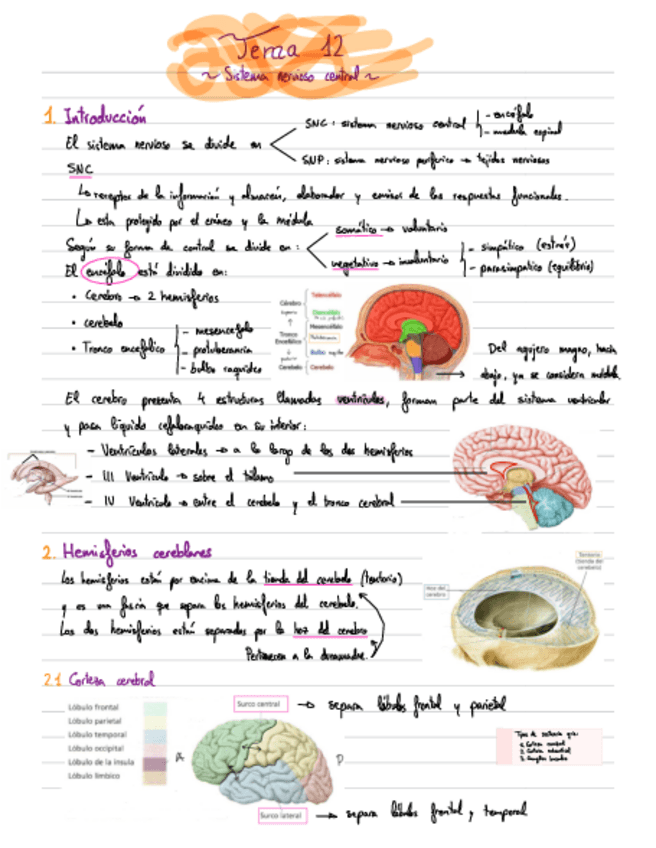 Tema 12
~ Sistema nervioso central ~
1. Introducción
El sistema nervioso se divide en
SNC: sistema nervioso central
- encéfalo
- medula espinal
SNP: sistema nervioso periférico → tejidos nerviosos
SNC
↳ receptor de la información y almacén, elaborador y emisor de las respuestas funcionales.
↳ esta protegido por el cráneo y la médula
Según su forma de control se divide en:
somático → voluntario
vegetativo → involuntario
- simpático (estrés)
- parasimpatico (equilibrio)
El encéfalo está dividido en:
• Cerebro → 2 hemisferios
• cerebelo
• Tronco encefálico
- mesencéfalo
- protuberancia
- bulbo raquídeo
Cerebro
Telencéfalo
Diencéfalo
Mesencéfalo
Tronco
Encefálico
Protuberancia
Bulbo
Cerebelo
Cerebelo
Del agujero magno, hacia
abajo, ya se considera médula
El cerebro presenta 4 estructuras llamadas ventrículos, forman parte del sistema ventricular
y pasa líquido cefalorraquídeo en su interior:
- Ventrículos laterales → a lo largo de los dos hemisferios
- III Ventrículo → sobre el tálamo
- IV Ventrículo → entre el cerebelo y el tronco cerebral
2. Hemisferios cerebrales
Los hemisferios están por encima de la tienda del cerebelo (tentorio)
y es una fascia que separa los hemisferios del cerebelo.
Los dos hemisferios están separados por la hoz del cerebro
Pertenecen a la duramadre.
Tentorio
(tienda del
cerebelo)
Hoz del
cerebro
2.1 Corteza cerebral
Lóbulo frontal
Lóbulo parietal
Lóbulo temporal
Lóbulo occipital
Lóbulo de la ínsula
Lóbulo límbico
Surco central
→ separa lóbulos frontal y parietal
A
P
Tipos de sustancia gris:
1. Corteza cerebral
3. Ganglios basales
Surco lateral
→ separa lóbulos frontal y temporal